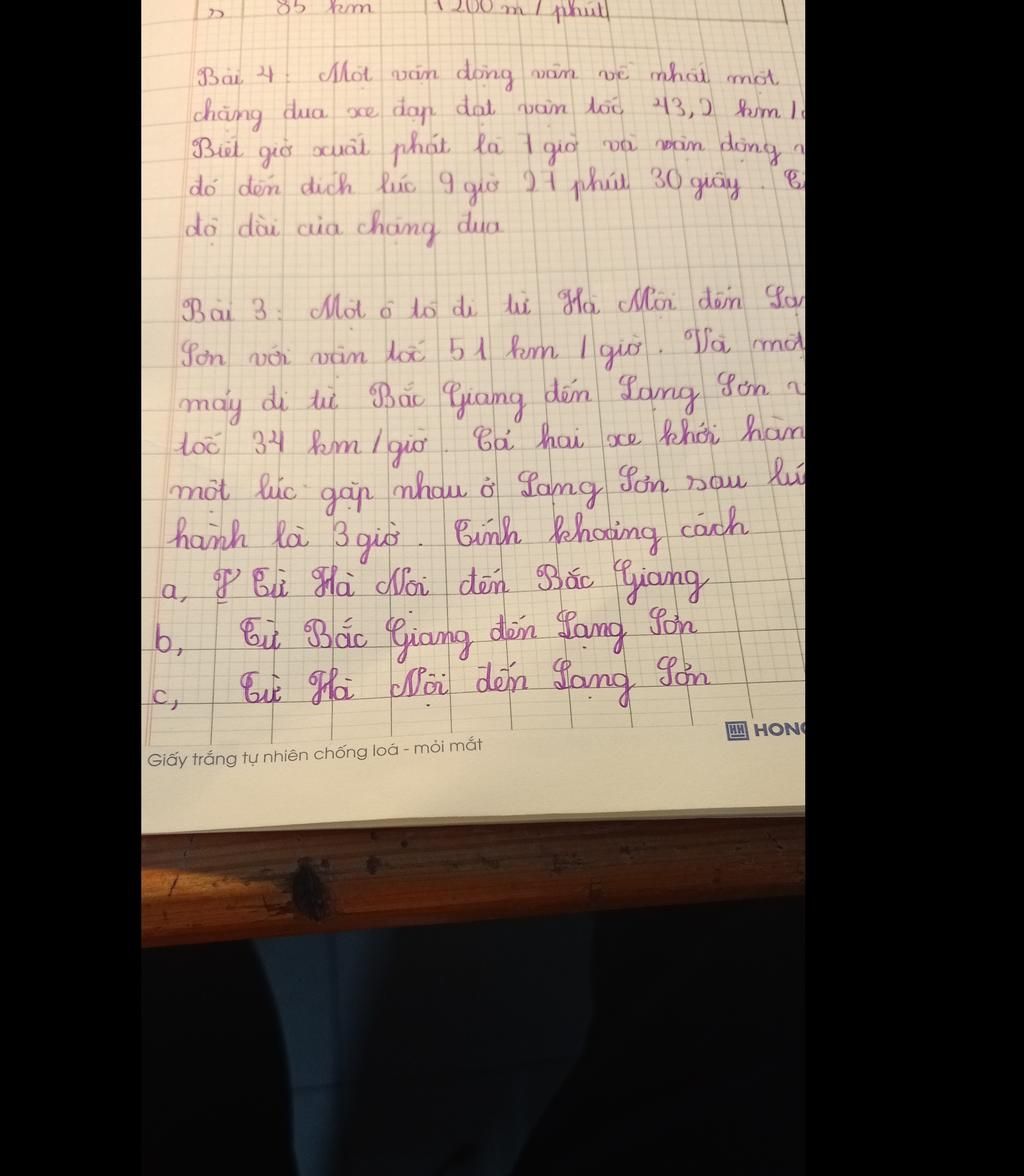 85 km 1200 m / phút
Bài 4: Một vận động viên về nhất một
chặng đua xe đạp đạt vận tốc 43,2 km /
Biết giờ xuất phát là 7 giờ và vận động
đó đến đích lúc 9 giờ 27 phút 30 giây.
độ dài của chặng đua
Bài 3: Một ô tô đi từ Hà Nội đến
Sơn với vận tốc 51 km / giờ. Và
máy đi từ Bắc Giang đến Lạng Sơn
tốc 34 km / giờ. Cả hai xe khởi
một lúc gặp nhau ở Lạng Sơn sau
hành là 3 giờ. Tính khoảng cách
a, Từ Hà Nội đến Bắc Giang
b, Từ Bắc Giang đến Lạng Sơn
c, Từ Hà Nội đến Lạng Sơn
HH
Giấy trắng tự nhiên chống loá - mỏi mắt